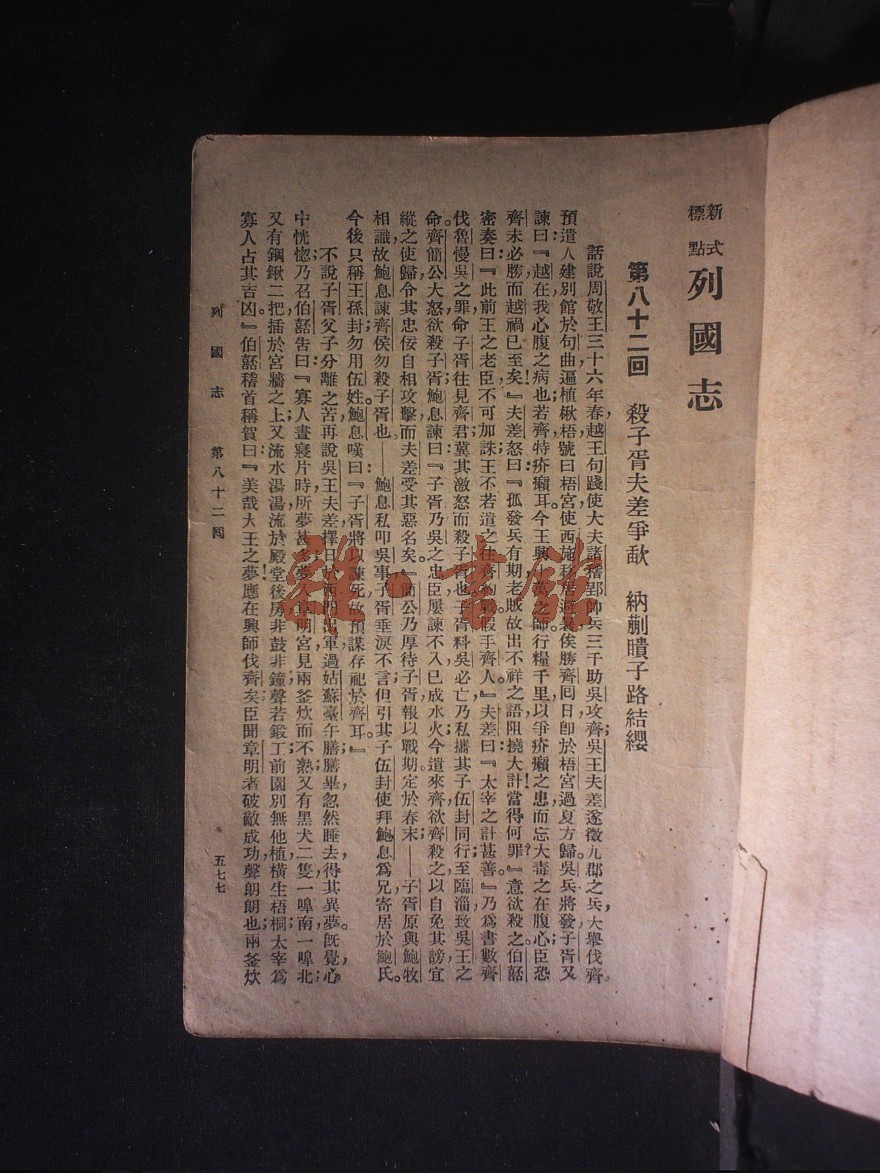 新式標點 列國志
第八十二回　殺子胥夫差爭歃　納蒯聵子路結纓
話說周敬王三十六年春，越王句踐使大夫諸稽郢帥兵三千助吳攻齊；吳王夫差遂徵九郡之兵，大舉伐齊，
預遣人建別館於句曲，遍植楸梧，號曰梧宮，使西施移居避暑，俟勝齊囘日，卽於梧宮過夏方歸。吳兵將發，子胥又
諫曰：『越在我心腹之病也；若齊特疥癩耳。今王興十萬之師，行糧千里，以爭疥癩之患，而忘大毒之在腹心，臣恐
齊未必勝，而越禍已至矣！』夫差怒曰：『孤發兵有期，老賊故出不祥之語，阻撓大計，當得何罪？』意欲殺之。伯嚭
密奏曰：『此前王之老臣，不可加誅。王不若遣之往齊約戰，假手齊人。』夫差曰：『太宰之計甚善。』乃爲書數齊
伐魯慢吳之罪，命子胥往見齊君，冀其激怒而殺子胥也。子胥料吳必亡，乃私攜其子伍封同行；至臨淄，致吳王之
命。齊簡公大怒，欲殺子胥；鮑息諫曰：『子胥乃吳之忠臣，屢諫不入，已成水火，今遣來齊，欲齊殺之，以自免其謗；宜
縱之使歸，令其忠佞自相攻擊，而夫差受其惡名矣。』簡公乃厚待子胥，報以戰期，定於春末——子胥原與鮑牧
相識，故鮑息諫齊侯勿殺子胥也——鮑息私叩吳事，子胥垂淚不言；但引其子伍封，使拜鮑息爲兄，寄居於鮑氏。
今後只稱王孫封，勿用伍姓。鮑息嘆曰：『子胥將以諫死，故預謀存祀於齊耳。』
不說子胥父子分離之苦，再說吳王夫差擇日於西門出軍，過姑蘇臺午膳；膳畢，忽然睡去，得其異夢。旣覺，心
中恍惚，乃召伯嚭告曰：『寡人晝寢片時，所夢甚多：夢入章明宮，見兩釜炊而不熟；又有黑犬二隻，一嘷南，一嘷北；
又有鋼鍬二把，插於宮牆之上；又流水湯湯，流於殿堂；後房非鼓非鐘，聲若鍛工；前園別無他植，橫生梧桐；太宰爲
寡人占其吉凶。』伯嚭稽首稱賀曰：『美哉大王之夢！應在興師伐齊矣；臣聞章明者，破敵成功，聲朗朗也；兩釜炊
列國志　第八十二囘　五七七
雜·書館